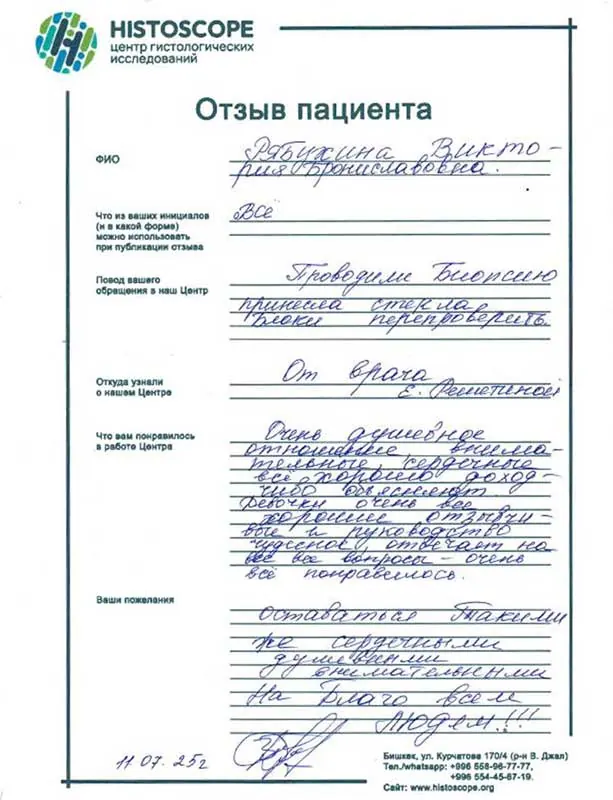 HISTOSCOPE
центр гистологических
исследований
Отзыв пациента
ФИО
Рябухина Викто-
рия Брониславовна.
Что из ваших инициалов
(и в какой форме)
можно использовать
при публикации отзыва
Всё
Повод вашего
обращения в наш Центр
Проводили Биопсию
принесла стекла
Блоки перепроверить.
Откуда узнали
о нашем Центре
От врача
Е. Решетиной
Что вам понравилось
в работе Центра
Очень душевное
отношение, внима-
тельные, сердечные
всё хорошо доход-
чиво объясняют.
Девочки очень все
хорошие отзывчи-
вые и руководство
чудесное, отвечает на
все все вопросы - очень
всё понравилось.
Ваши пожелания
Оставаться такими
же сердечными
душевными
внимательными
На Благо всем
Людям!!!
11.07.25г
Бишкек, ул. Курчатова 170/4 (р-н В. Джал)
Тел./whatsapp: +996 558-96-77-77,
+996 554-45-67-19.
Сайт: www.histoscope.org